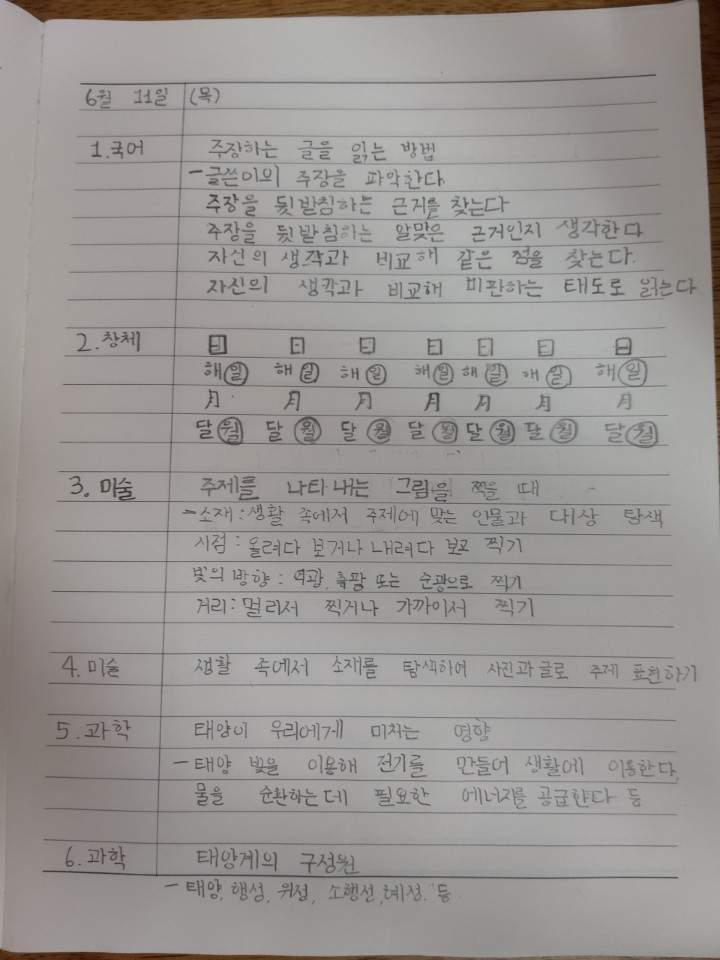 6월 11일 (목)
1.국어 주장하는 글을 읽는 방법
-글쓴이의 주장을 파악한다
주장을 뒷받침하는 근거를 찾는다
주장을 뒷받침하는 알맞은 근거인지 생각한다
자신의 생각과 비교해 같은 점을 찾는다.
자신의 생각과 비교해 비판하는 태도로 읽는다
2.창체 日 日 日 日 日 日 日
해일 해일 해일 해일 해일 해일 해일
月 月 月 月 月 月 月
달월 달월 달월 달월 달월 달월 달월
3. 미술 주제를 나타내는 그림을 찍을 때
-소재:생활 속에서 주제에 맞는 인물과 대상 탐색
시점:올려다 보거나 내려다 보고 찍기
빛의 방향: 역광, 측광 또는 순광으로 찍기
거리:멀리서 찍거나 가까이서 찍기
4.미술 생활 속에서 소재를 탐색하여 사진과 글로 주제 표현하기
5.과학 태양이 우리에게 미치는 영향
-태양 빛을 이용해 전기를 만들어 생활에 이용한다,
물을 순환하는데 필요한 에너지를 공급한다 등
6.과학 태양계의 구성원
-태양, 행성, 위성, 소행성, 혜성. 등